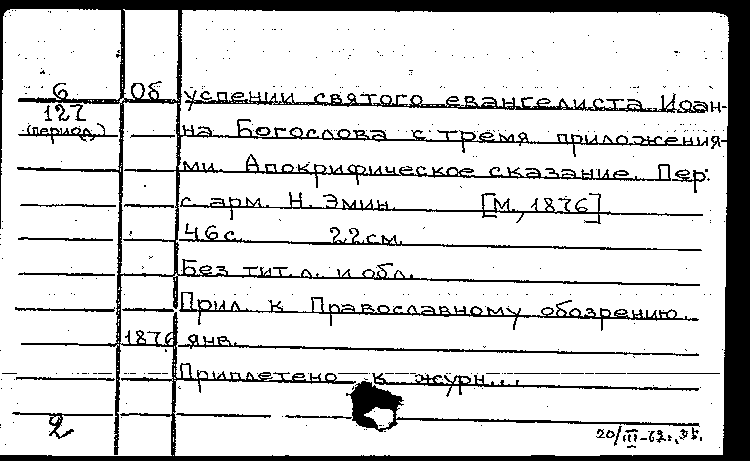 6 Об успении святого евангелиста Иоан-
127
(период.) на Богослова с тремя приложения-
ми. Апокрифическое сказание. Пер.
с арм. Н. Эмин. [М., 1876]
46с. 22см.
Без тит.л. и обл.
Прил. к Православному обозрению.
1876 янв.
Приплетено к журн...
2
20/III-62г.